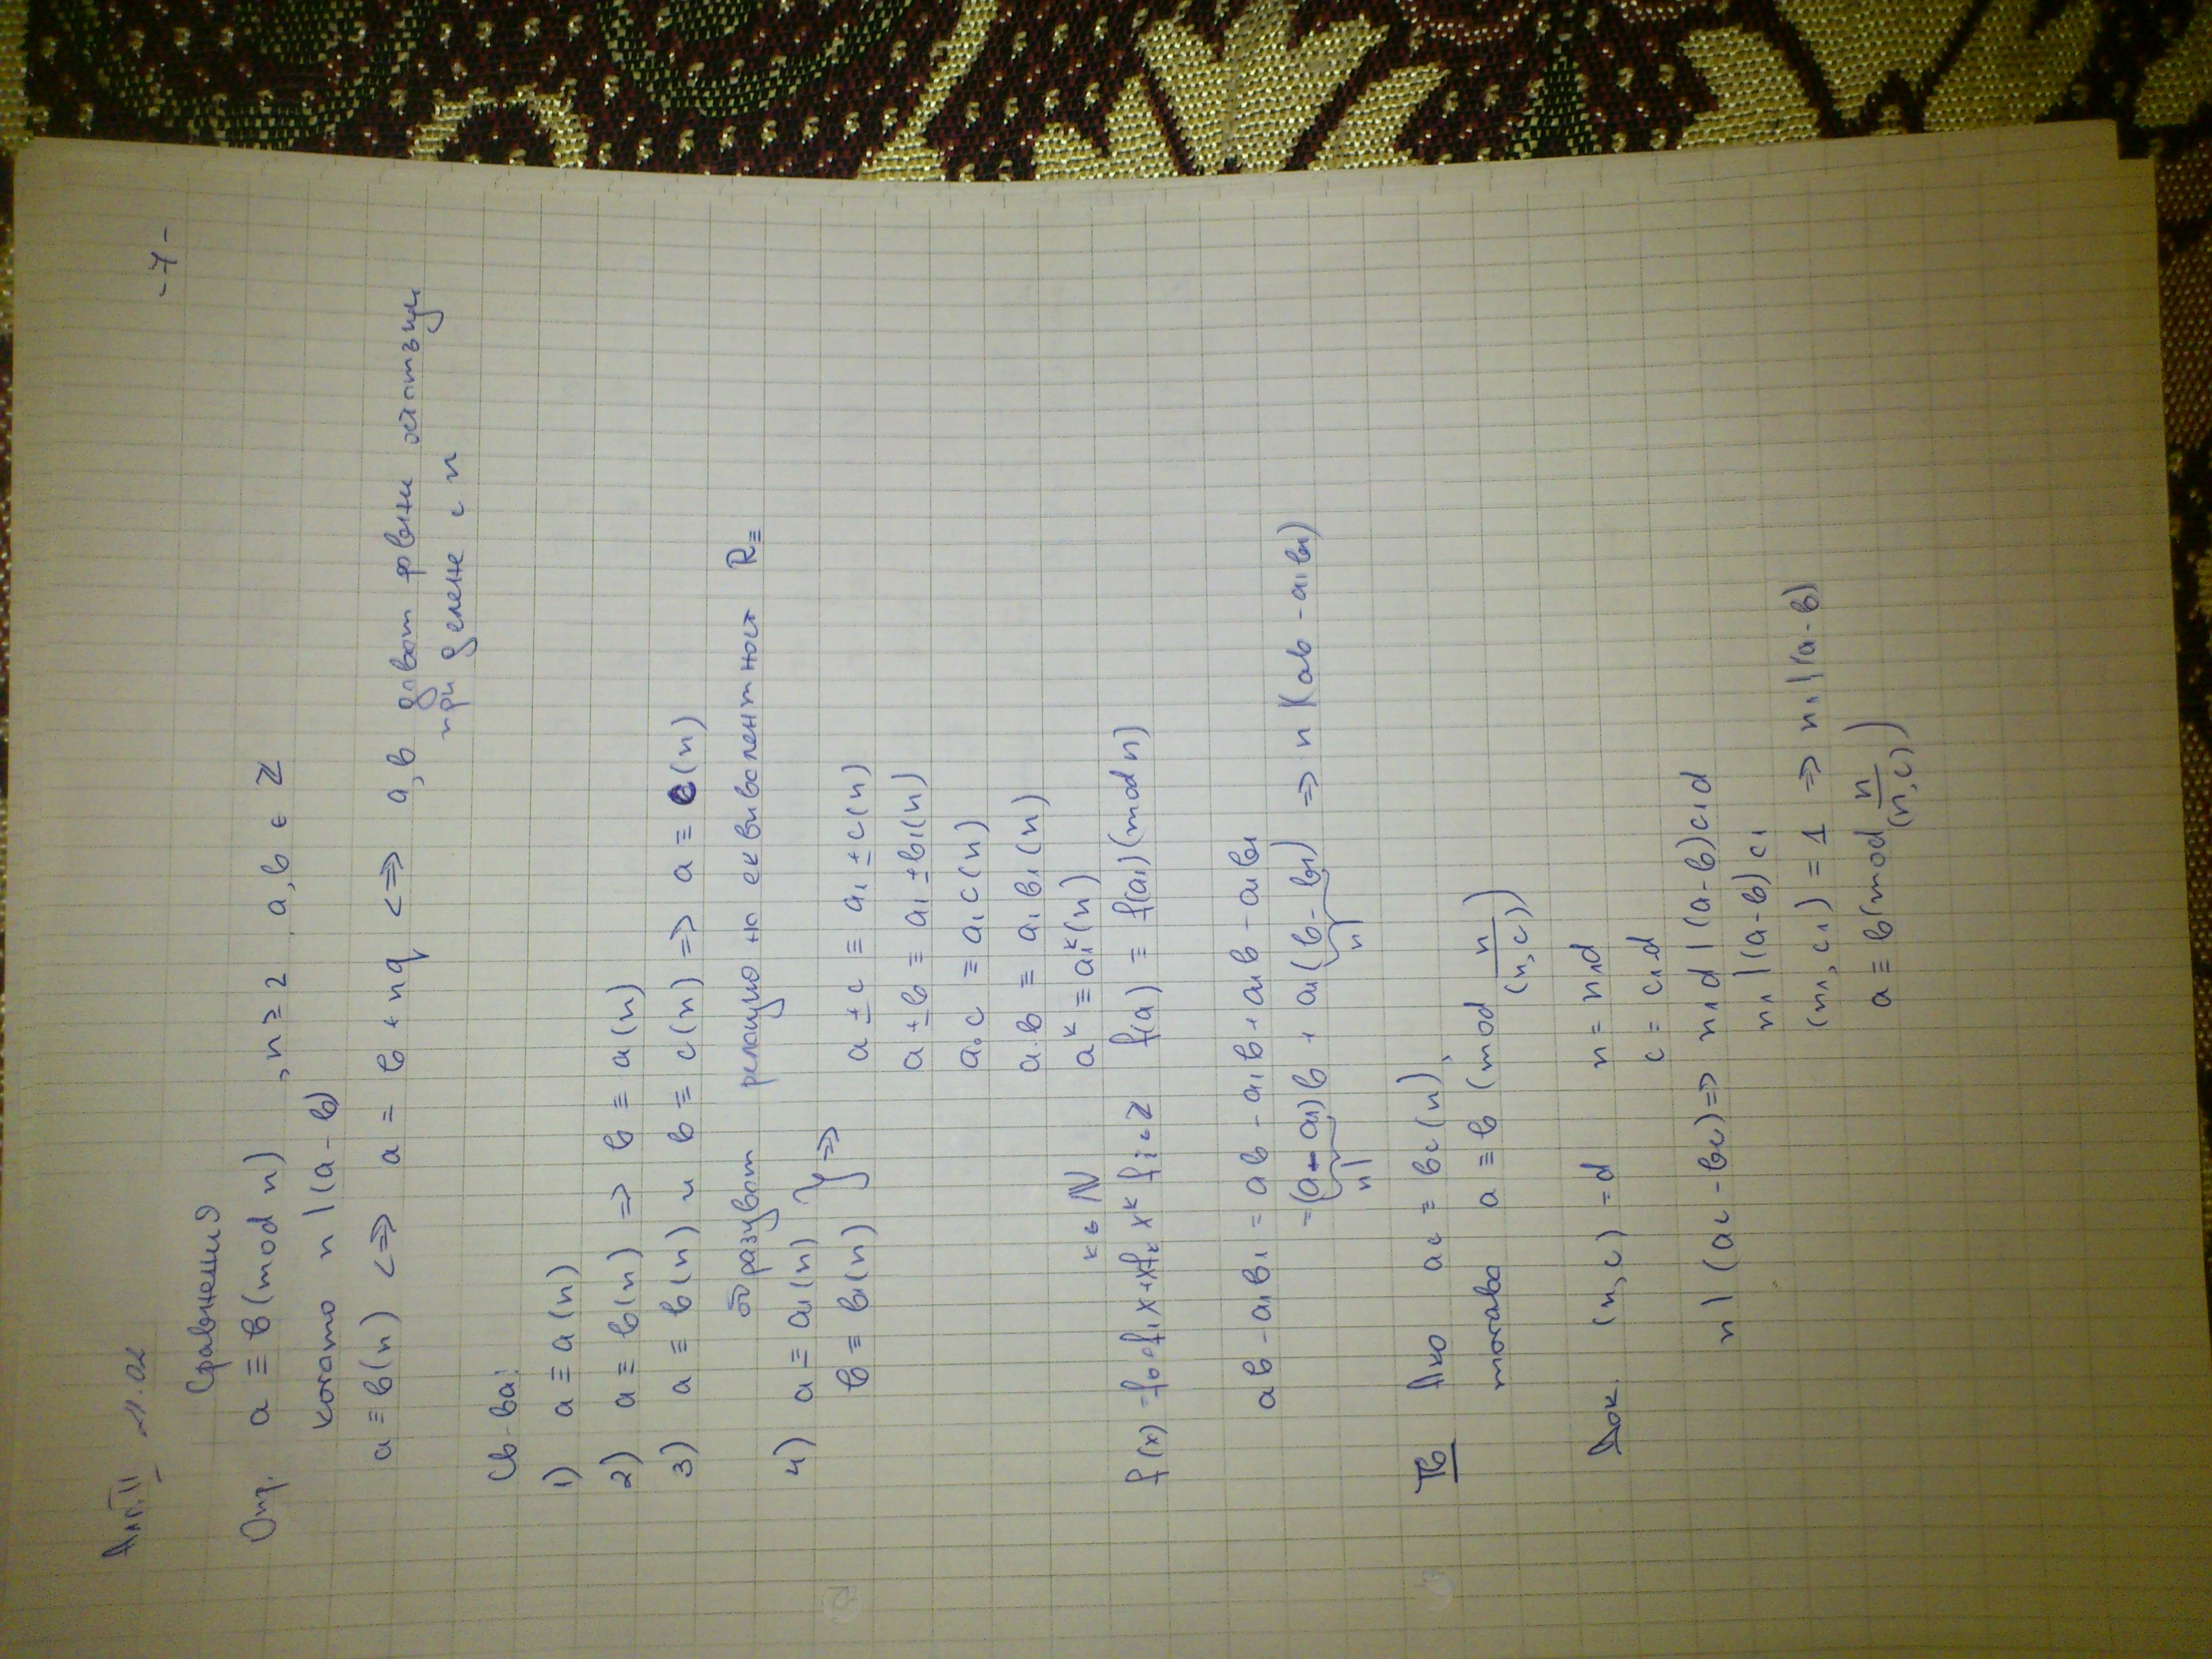 -7-
Алг. II 21.02
Сравнения
Опр. a ≡ b (mod n) , n ≥ 2 , a, b ∈ ℤ
когато n | (a - b)
a ≡ b(n) <=> a = b + nq <=> a, b дават равни остатъци
при делене с n
Св-ва:
1) a ≡ a (n)
2) a ≡ b(n) => b ≡ a(n)
3) a ≡ b(n) и b ≡ c(n) => a ≡ c(n)
образуват релация на еквивалентност R≡
4) a ≡ a₁(n) } => a ± c ≡ a₁ ± c(n)
b ≡ b₁(n) a ± b ≡ a₁ ± b₁(n)
a.c ≡ a₁c(n)
a.b ≡ a₁b₁(n)
k ∈ N aᵏ ≡ a₁ᵏ(n)
f(x) = f₀+f₁x+..+fₖxᵏ fᵢ ∈ ℤ f(a) ≡ f(a₁)(mod n)
ab - a₁b₁ = ab - a₁b + a₁b - a₁b₁
=(a - a₁)b + a₁(b - b₁) => n | (ab - a₁b₁)
n| n|
Тв Ако ac ≡ bc(n),
тогава a ≡ b (mod n/(n,c))
Док. (n, c) = d n = n₁d
c = c₁d
n | (ac - bc) => n₁d | (a-b)c₁d
n₁ | (a-b)c₁
(n₁, c₁) = 1 => n₁ | (a-b)
a ≡ b (mod n/(n,c))